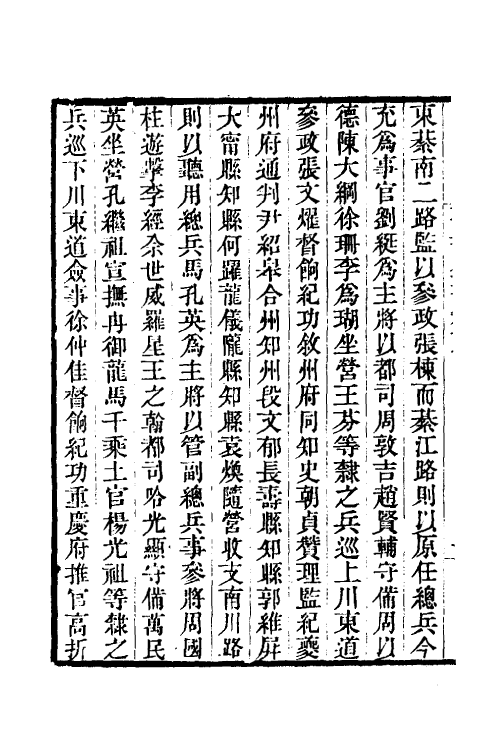 東綦南二路監以參政張棟而綦江路則以原任總兵今
充爲事官劉綎爲主將以都司周敦吉趙賢輔守備周以
德陳大綱徐珊李爲瑚坐營王芬等隸之兵巡上川東道
參政張文燿督餉紀功敘州府同知史朝貞贊理監紀夔
州府通判尹紹皋合州知州段文郁長壽縣知縣郭維屏
大甯縣知縣何躍龍儀隴縣知縣袁煥隨營收支南川路
則以聽用總兵馬孔英爲主將以管副總兵事參將周國
柱遊擊李經佘世威羅星王之翰都司哈光顯守備萬民
英坐營孔繼祖宣撫冉御龍馬千乘土官楊光祖等隸之
兵巡下川東道僉事徐仲佳督餉紀功重慶府推官高折